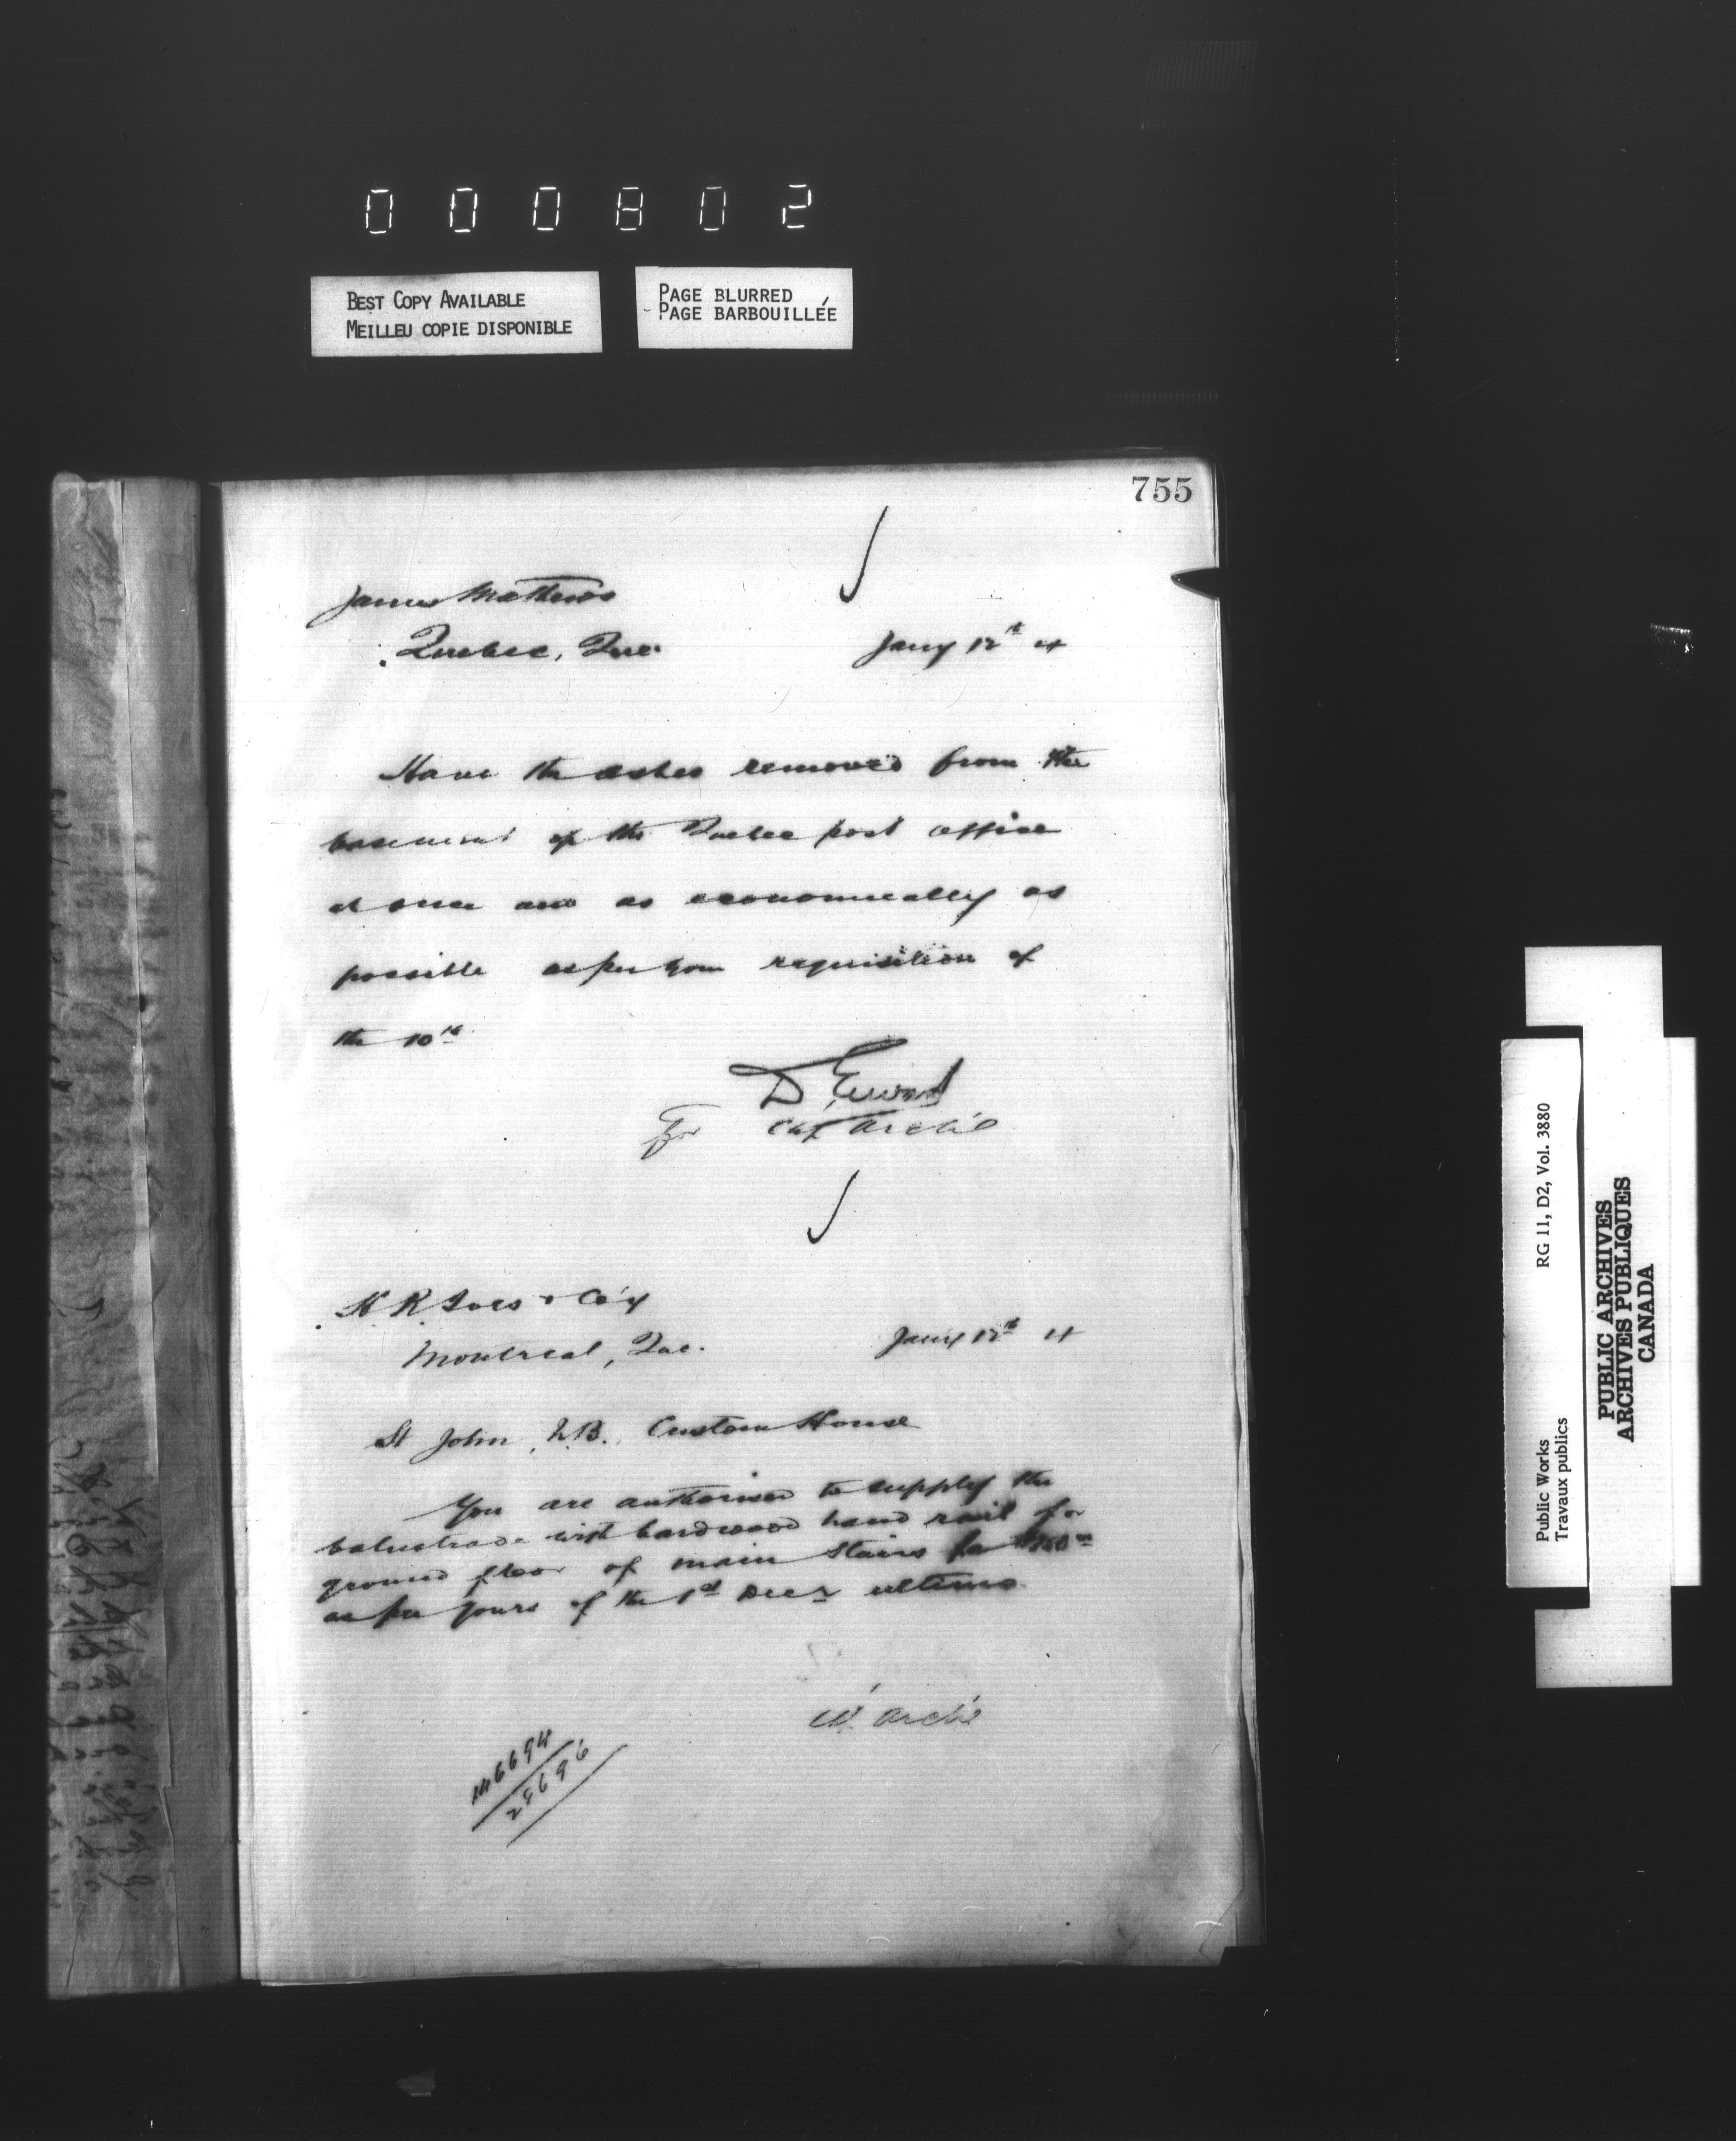 000802
BEST COPY AVAILABLE
MEILLEU COPIE DISPONIBLE
PAGE BLURRED
PAGE BARBOUILLÉE
755
James Mathews
Quebec, Que.
Jany 12th 4
Have the ashes removed from the
basement of the Quebec post office
at once and as economically as
possible as per your requisition of
the 10th
D Ewart
For Chf Archt
H. R. Ives & Co'y
Montreal, Que.
Jany 12th 4
St John, N.B. Custom House
You are authorised to supply the
balustrade with hardwood hand rail for
ground floor of main stairs for
as per yours of the 1st Decr ultimo.
Archt
146694
Public Works
Travaux publics
RG 11, D2, Vol. 3880
PUBLIC ARCHIVES
ARCHIVES PUBLIQUES
CANADA